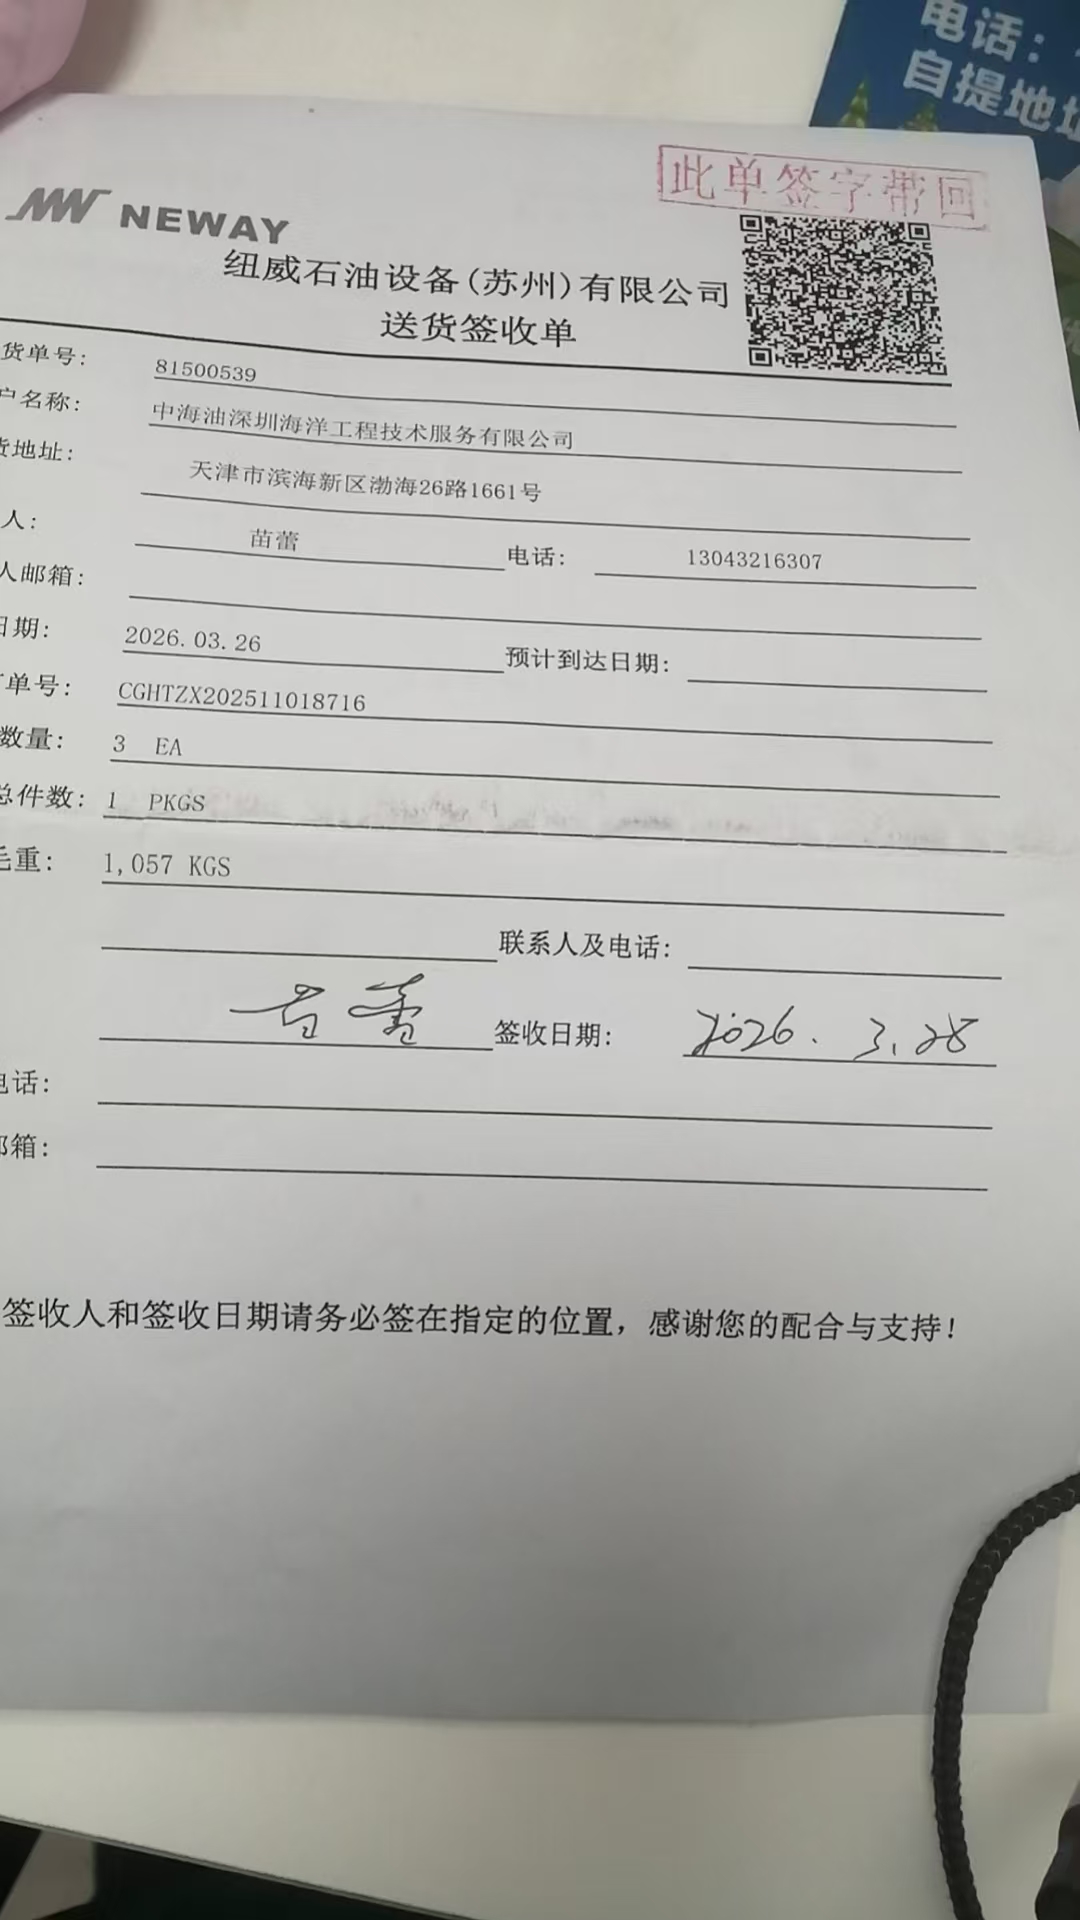 电话:
自提地址
此单签字带回
NEWAY
纽威石油设备(苏州)有限公司
送货签收单
货单号: 81500539
户名称: 中海油深圳海洋工程技术服务有限公司
货地址: 天津市滨海新区渤海26路1661号
人: 苗蕾 电话: 13043216307
人邮箱:
日期: 2026.03.26 预计到达日期:
单号: CGHTZX202511018716
数量: 3 EA
总件数: 1 PKGS
毛重: 1,057 KGS
联系人及电话:
苗蕾 签收日期: 2026. 3. 28
电话:
邮箱:
签收人和签收日期请务必签在指定的位置，感谢您的配合与支持!